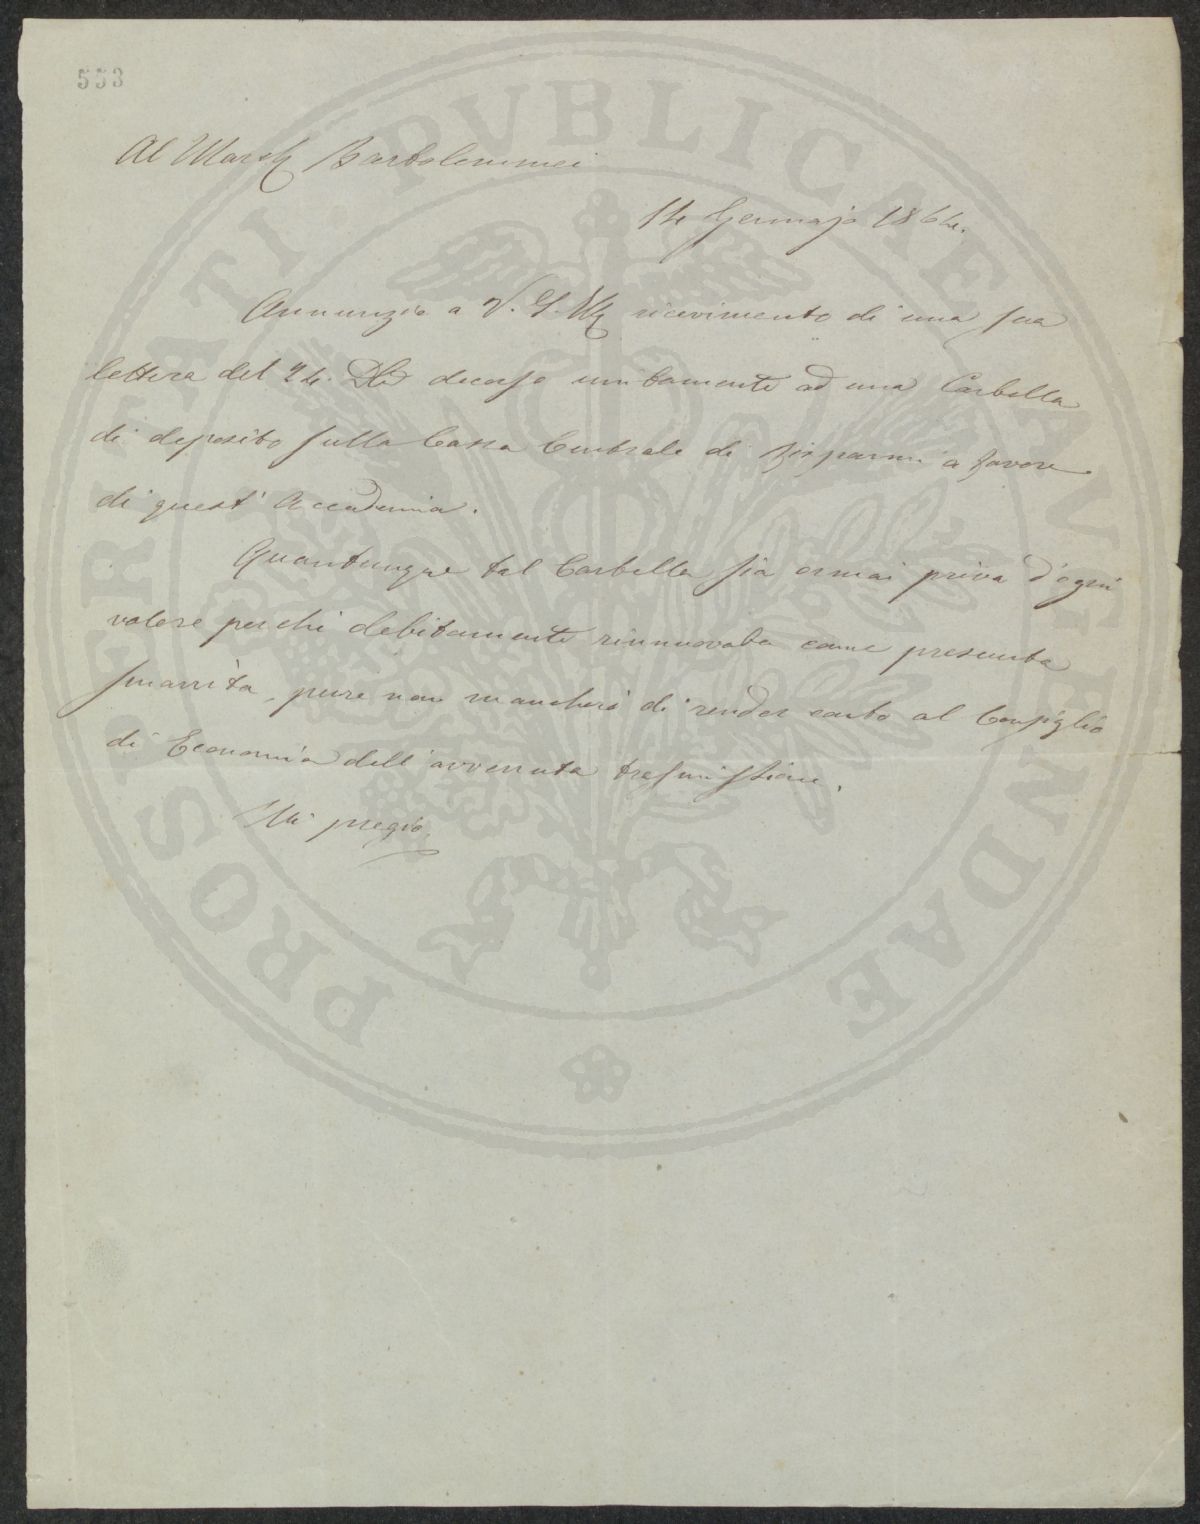 553
Al March Bartolommei
14 Gennajo 1864.
Annunzio a V. S. Ill ricevimento di una sua
lettera del 24. Dbe decorso unitamente ad una Cartella
di deposito sulla Cassa Centrale di Risparmi a favore
di quest' Accademia.
Quantunque tal Cartella sia ormai priva d'ogni
valore perchè debitamente rinnuovata come presunta
smarrita, pure non mancherò di render conto al Consiglio
di Economia dell' avvenuta trasmissione.
Mi pregio
PROSPERITATI · PVBLICAE AVGENDAE